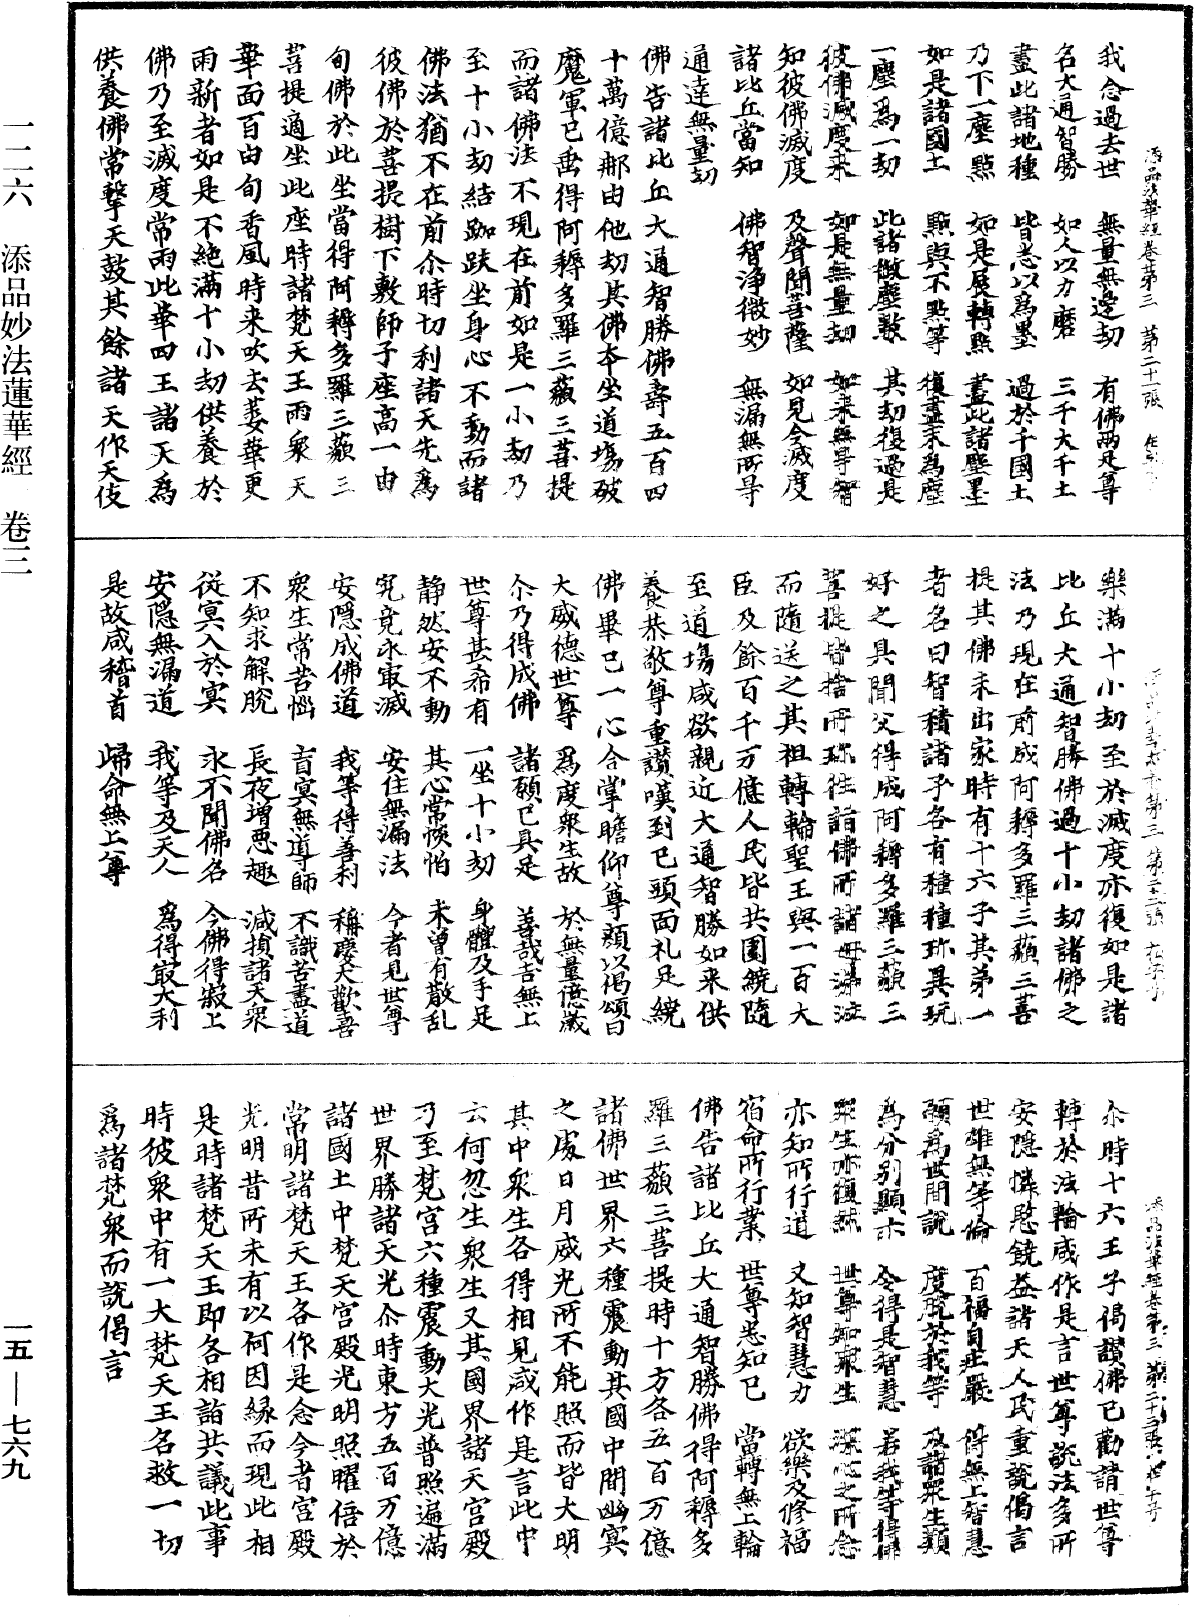 一二六　添品妙法蓮華經　卷三
一五—七六九
我念過去世　無量無邊劫　有佛兩足尊
名大通智勝　如人以力磨　三千大千土
盡此諸地種　皆悉以爲墨　過於千國土
乃下一塵點　如是展轉點　盡此諸塵墨
如是諸國土　點與不點等　復盡末爲塵
一塵爲一劫　此諸微塵數　其劫復過是
彼佛滅度来　如是無量劫　如来無㝵智
知彼佛滅度　及聲聞菩薩　如見今滅度
諸比丘當知　佛智淨微妙　無漏無所㝵
通達無量劫
佛告諸比丘大通智勝佛壽五百四
十萬億那由他劫其佛本坐道場破
魔軍已垂得阿耨多羅三藐三菩提
而諸佛法不現在前如是一小劫乃
至十小劫結跏趺坐身心不動而諸
佛法猶不在前尒時忉利諸天先爲
彼佛於菩提樹下敷師子座高一由
旬佛於此坐當得阿耨多羅三藐三
菩提適坐此座時諸梵天王雨衆天
華面百由旬香風時来吹去萎華更
雨新者如是不絶滿十小劫供養於
佛乃至滅度常雨此華四王諸天爲
供養佛常擊天鼓其餘諸天作天伎
樂滿十小劫至於滅度亦復如是諸
比丘大通智勝佛過十小劫諸佛之
法乃現在前成阿耨多羅三藐三菩
提其佛未出家時有十六子其第一
者名曰智積諸子各有種種珎異玩
好之具聞父得成阿耨多羅三藐三
菩提皆捨所珎往詣佛所諸母涕泣
而隨送之其祖轉輪聖王與一百大
臣及餘百千万億人民皆共圍繞隨
至道場咸欲親近大通智勝如来供
養恭敬尊重讃嘆到已頭面礼足繞
佛畢已一心合掌瞻仰尊顔以偈頌曰
大威德世尊　爲度衆生故　於無量億歲
尒乃得成佛　諸願已具足　善哉吉無上
世尊甚希有　一坐十小劫　身體及手足
静然安不動　其心常惔怕　未曾有散亂
究竟永㝡滅　安住無漏法　今者見世尊
安隱成佛道　我等得善利　稱慶大歡喜
衆生常苦惱　盲冥無導師　不識苦盡道
不知求解脫　長夜增惡趣　減損諸天衆
從冥入於冥　永不聞佛名　今佛得㝡上
安隱無漏道　我等及天人　爲得㝡大利
是故咸稽首　歸命無上尊
尒時十六王子偈讃佛已勸請世尊
轉於法輪咸作是言世尊說法多所
安隱憐愍饒益諸天人民重說偈言
世雄無等倫　百福自莊嚴　得無上智慧
願爲世間說　度脫於我等　及諸衆生類
爲分別顯示　令得是智慧　若我等得佛
衆生亦復然　世尊知衆生　深心之所念
亦知所行道　又知智慧力　欲樂及修福
宿命所行業　世尊悉知已　當轉無上輪
佛告諸比丘大通智勝佛得阿耨多
羅三藐三菩提時十方各五百万億
諸佛世界六種震動其國中間幽冥
之處日月威光所不能照而皆大明
其中衆生各得相見咸作是言此中
云何忽生衆生又其國界諸天宮殿
乃至梵宮六種震動大光普照遍滿
世界勝諸天光尒時東方五百万億
諸國土中梵天宮殿光明照曜倍於
常明諸梵天王各作是念今者宮殿
光明昔所未有以何因緣而現此相
是時諸梵天王即各相詣共議此事
時彼衆中有一大梵天王名救一切
爲諸梵衆而說偈言